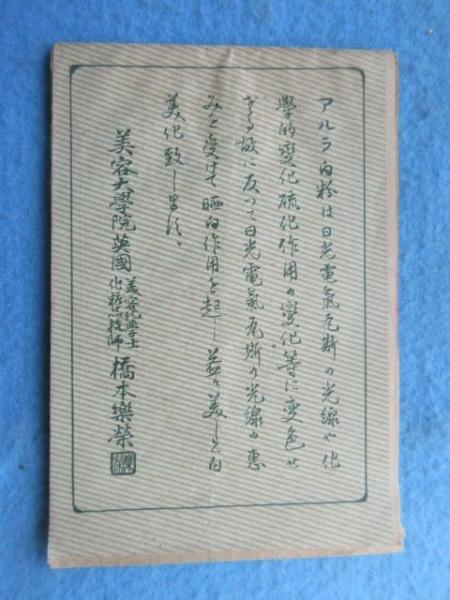 アルラ白粉は日光電氣瓦斯の光線や化
學的變化硫化作用の變化等に変色せ
ざる故に反つて日光電氣瓦斯の光線の惠
みを受けて晒白作用を起し益々美しき白
美化致します、
美容大學院英國美容化學士化粧技師 橋本樂榮